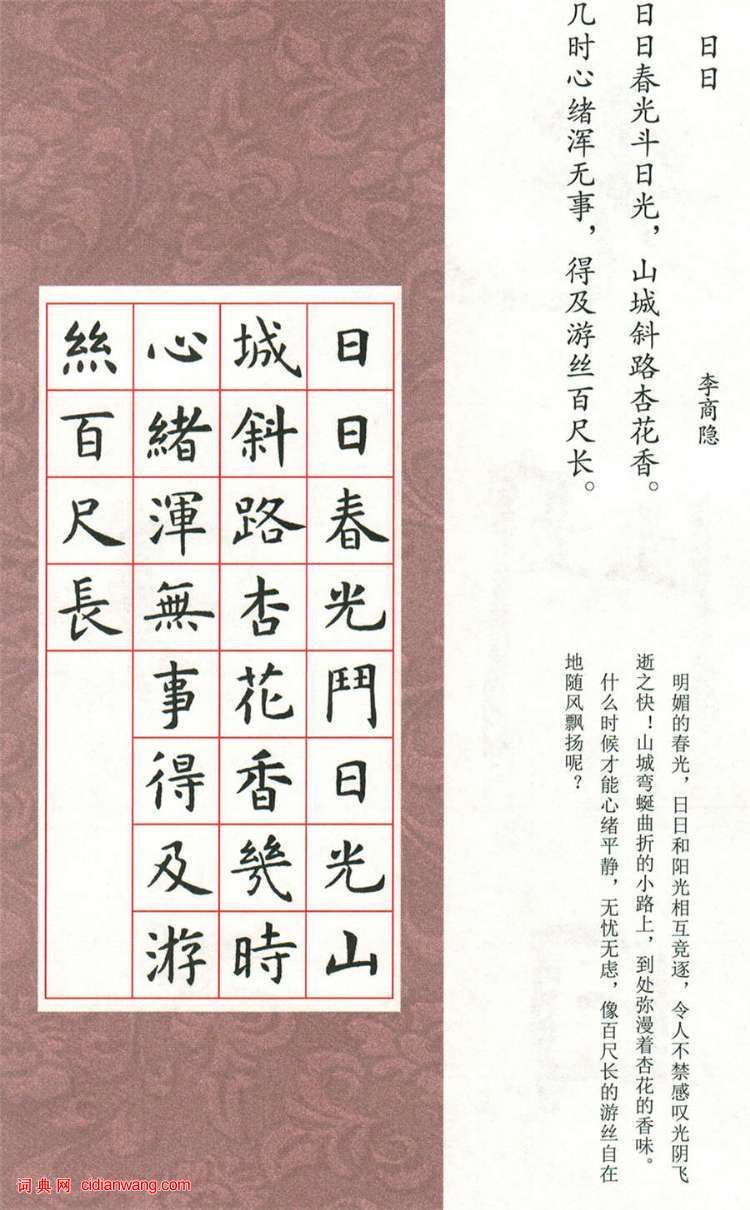 日日
李商隐
日日春光斗日光，山城斜路杏花香。
几时心绪浑无事，得及游丝百尺长。
明媚的春光，日日和阳光相互竞逐，令人不禁感叹光阴飞
逝之快！山城弯蜒曲折的小路上，到处弥漫着杏花的香味。
什么时候才能心绪平静，无忧无虑，像百尺长的游丝自在
地随风飘扬呢？
日日春光鬥日光山
城斜路杏花香幾時
心緒渾無事得及游
絲百尺長
词典网 cidianwang.com